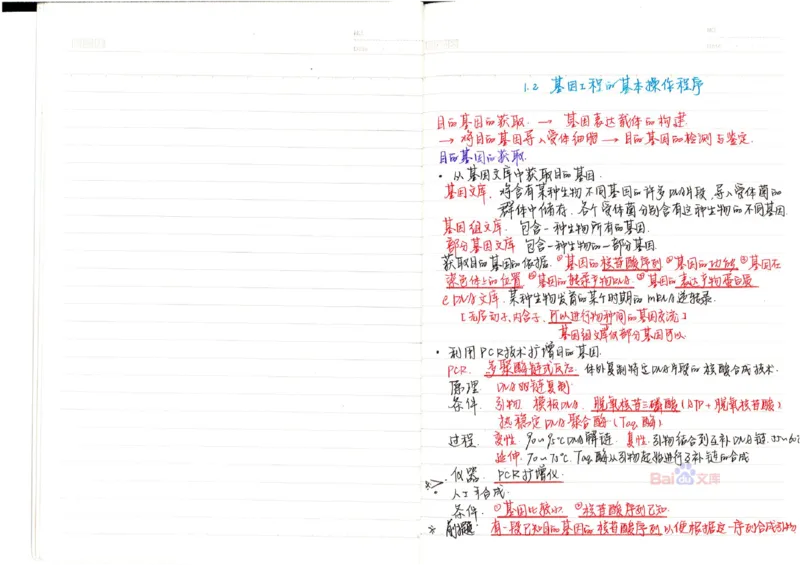 1.2 基因工程的基本操作程序
目的基因的获取. → 基因表达载体的构建
→ 将目的基因导入受体细胞 → 目的基因的检测与鉴定.
目的基因的获取.
· 从基因文库中获取目的基因.
基因文库. 将含有某种生物不同基因的许多DNA片段,导入受体菌的
群体中储存.各个受体菌分别含有这种生物的不同基因.
基因组文库. 包含一种生物所有的基因.
部分基因文库 包含一种生物的一部分基因.
获取目的基因的依据. ①基因的核苷酸序列 ②基因的功能 ③基因在
染色体上的位置 ④基因的转录产物 ⑤基因的表达产物蛋白质
cDNA文库. 某种生物发育的某个时期的mRNA逆转录.
[无启动子,内含子、可以进行物种间的基因交流]
基因组文库仅部分基因可以.
· 利用PCR技术扩增目的基因.
PCR. 多聚酶链式反应. 体外复制特定DNA片段的核酸合成技术.
原理. DNA双链复制.
条件. 引物. 模板DNA. 脱氧核苷三磷酸(
热稳定DNA聚合酶(Taq酶)
过程. 变性. 90~95℃DNA解链. 复性. 引物结合到互补DNA链.
延伸. 70~75℃. Taq酶从引物起始进行互补链的合成
仪器. PCR扩增仪.
· 人工合成.
条件. ①基因比较小. ②核苷酸序列已知.
※ 前提. 有一段已知目的基因的核苷酸序列以便根据这一序列合成引物
Bai 文库